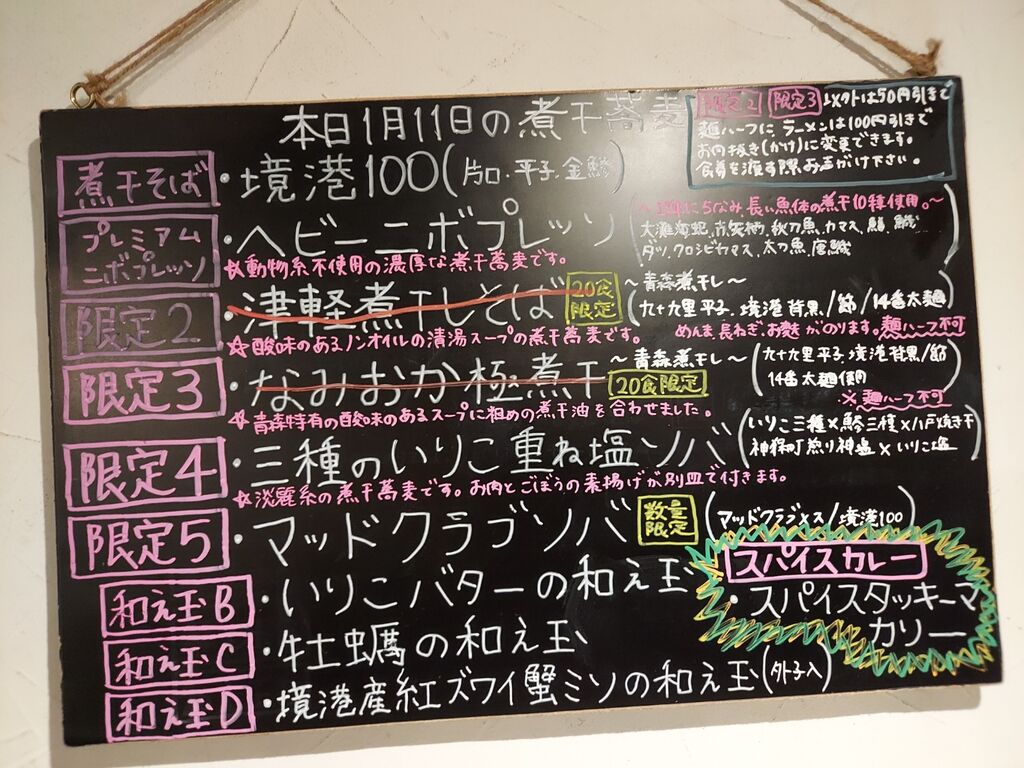 本日1月11日の煮干蕎麦
限定2 限定3 以外は50円引きで
麺ハーフに ラーメンは100円引きで
お肉抜き(かけ)に変更できます。
食券を渡す際お声がけ下さい。
煮干そば ・境港100(片口・平子・金鯵)
プレミアムニボプレッソ ・ヘビーニボプレッソ
ちなみ、長い魚体の煮干10種使用。~
秋刀魚、カマス、鯖
ダツ、クロシビカマス、太刀魚、唐
☆動物系不使用の濃厚な煮干蕎麦です。
限定2 ・津軽煮干しそば 20食限定 ~青森煮干し~
(九十九里平子、境港背黒/節/14番太麺)
☆酸味のあるノンオイルの清湯スープの煮干蕎麦です。 めんま長ねぎお麩がのります。麺ハーフ不可
限定3 ・なみおか極煮干 20食限定 ~青森煮干し~
(九十九里平子 境港背黒/節
14番太麺使用)
※麺ハーフ不可
☆青森特有の酸味のあるスープに粗めの煮干油を合わせました。
限定4 ・三種のいりこ重ね塩ソバ
(いりこ三種×鯵三種×八戸焼き干
神保町煎り神塩×いりこ塩)
☆淡麗系の煮干蕎麦です。お肉とごぼうの素揚げが別皿で付きます。
限定5 ・マッドクラブソバ 数量限定 (マッドクラブメス/境港100)
和え玉B ・いりこバターの和え玉
和え玉C ・牡蠣の和え玉
和え玉D ・境港産紅ズワイ蟹ミソの和え玉(外子入)
スパイスカレー
・スパイスタッキーマ
カリー